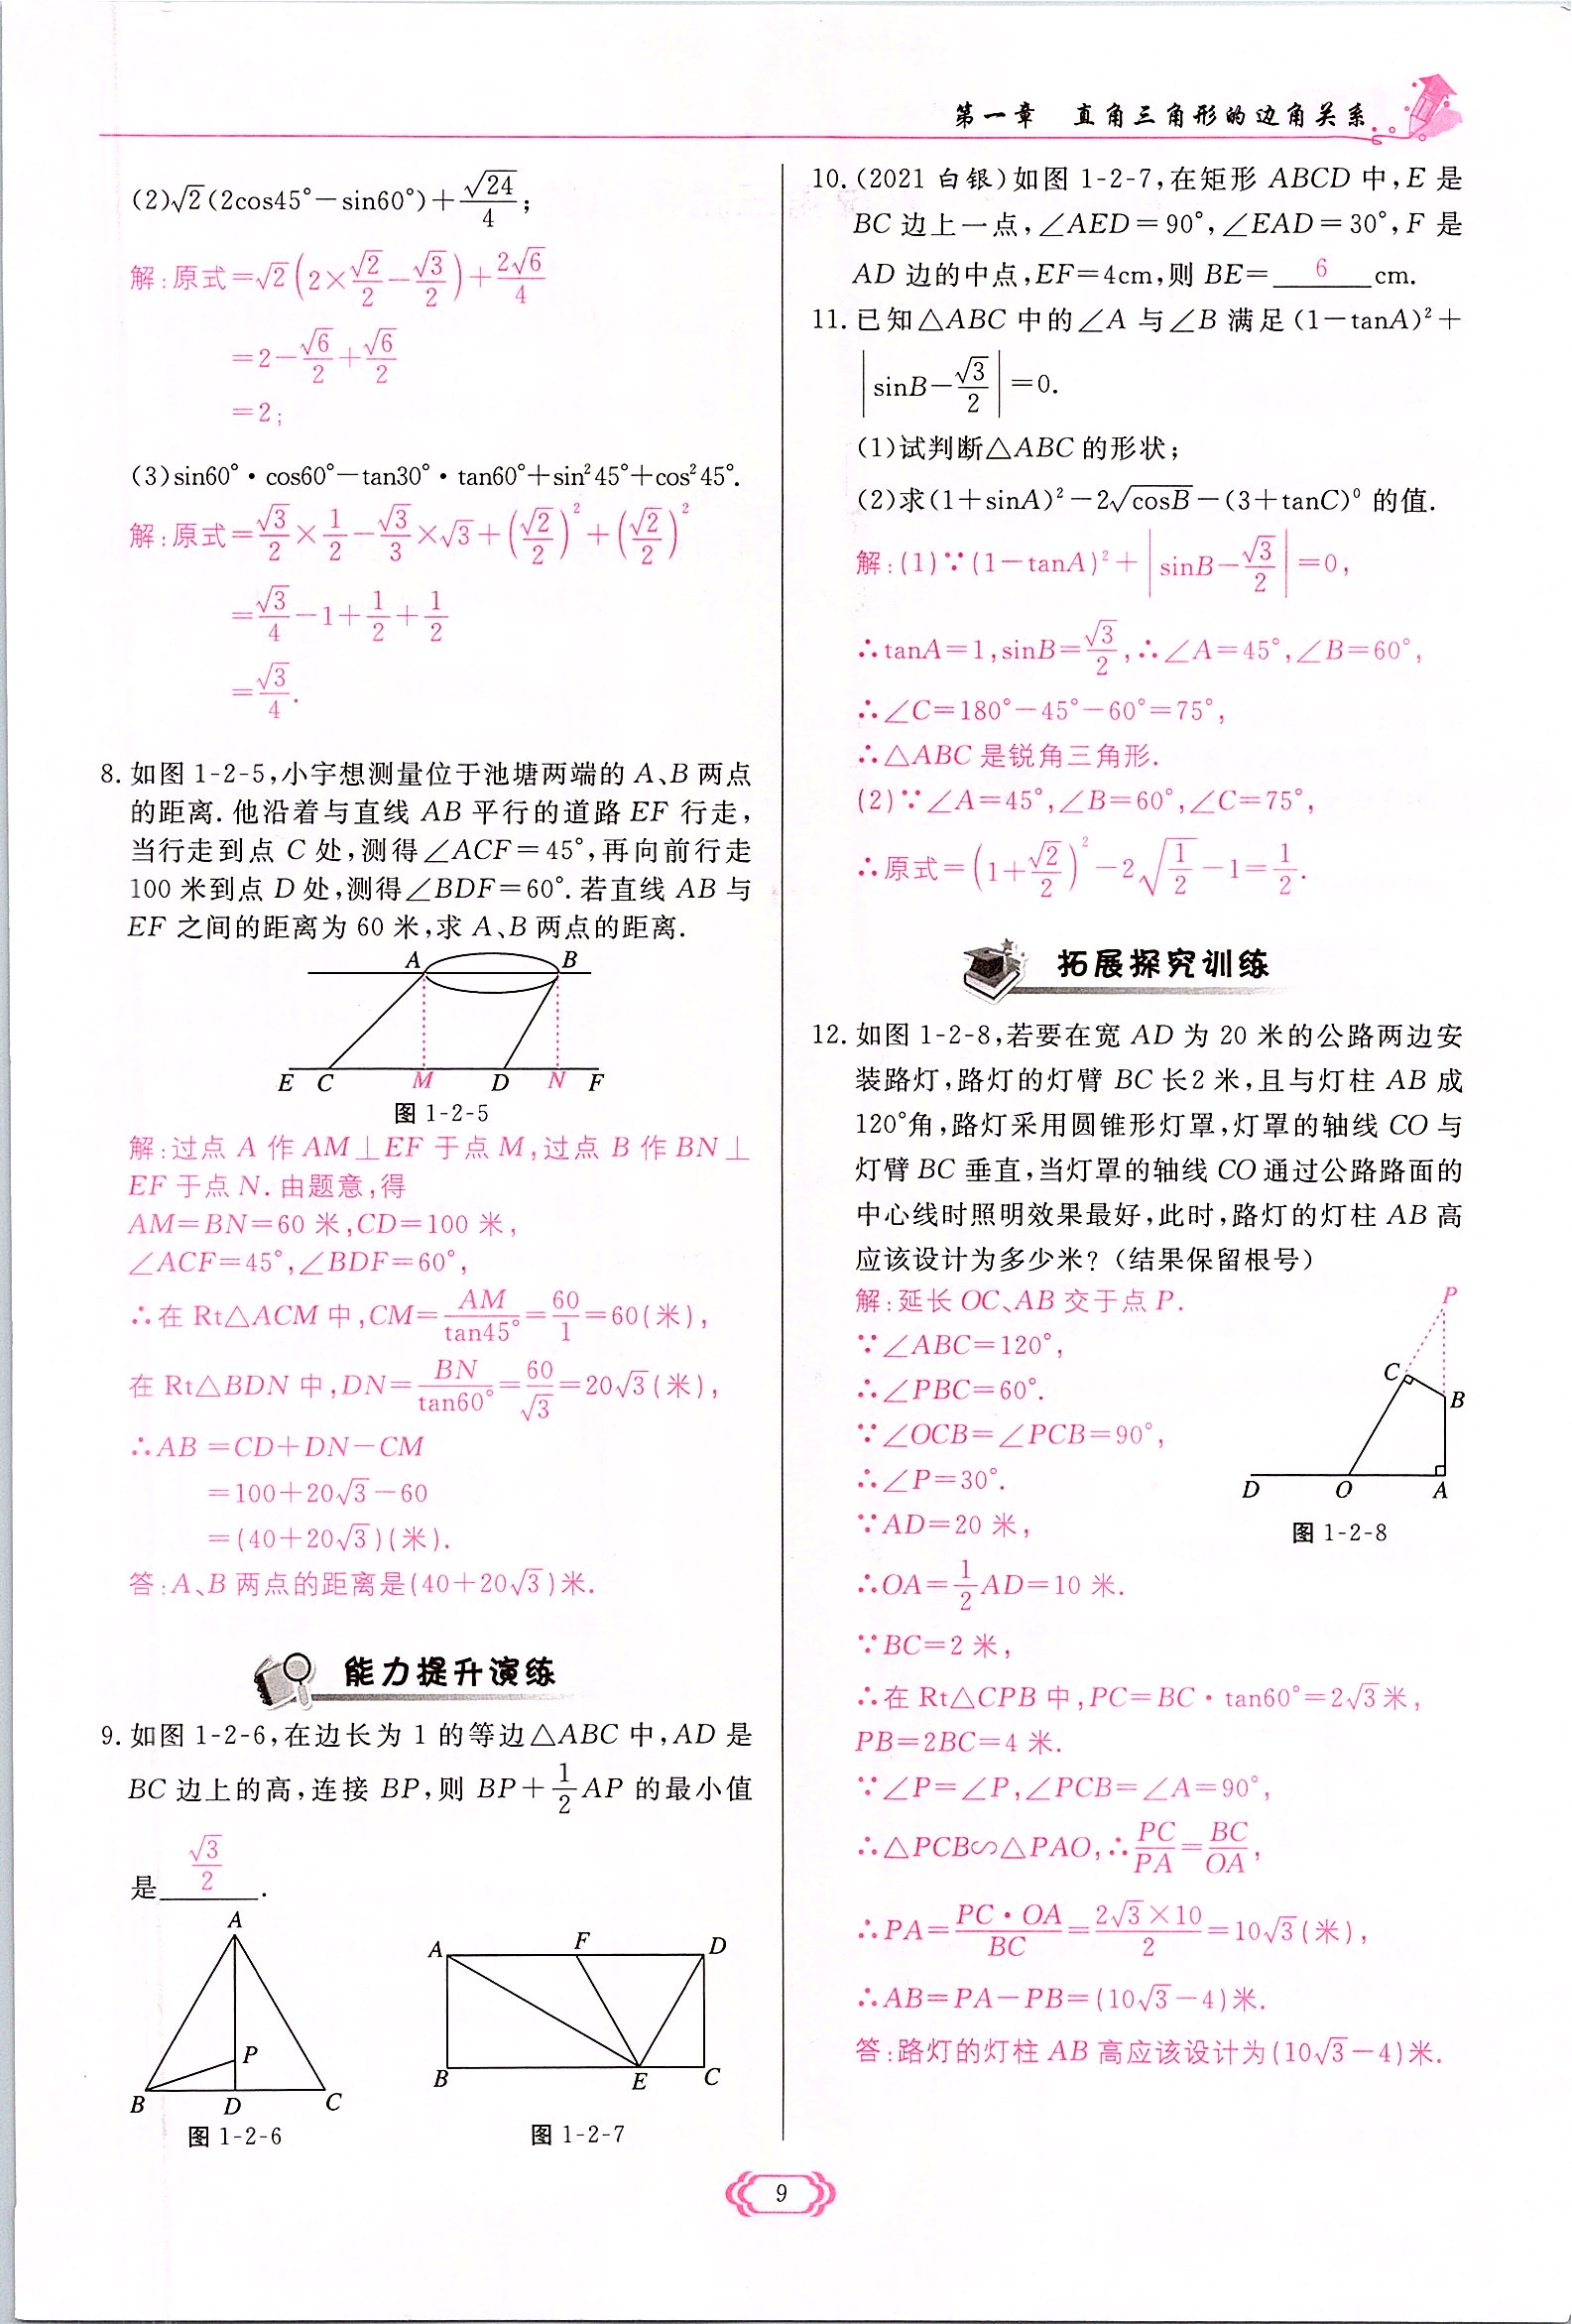 第一章 直角三角形的边角关系
(2)√2(2cos45°－sin60°)＋√24/4；
解：原式＝√2(2×√2/2－√3/2)＋2√6/4
＝2－√6/2＋√6/2
＝2；
(3)sin60°·cos60°－tan30°·tan60°＋sin²45°＋cos²45°.
解：原式＝√3/2×1/2－√3/3×√3＋(√2/2)²＋(√2/2)²
＝√3/4－1＋1/2＋1/2
＝√3/4.
8. 如图 1-2-5,小宇想测量位于池塘两端的 A、B 两点
的距离. 他沿着与直线 AB 平行的道路 EF 行走，
当行走到点 C 处,测得∠ACF＝45°,再向前行走
100 米到点 D 处,测得∠BDF＝60°. 若直线 AB 与
EF 之间的距离为 60 米,求 A、B 两点的距离.
A B
E C M D N F
图 1-2-5
解：过点 A 作 AM⊥EF 于点 M,过点 B 作 BN⊥
EF 于点 N. 由题意,得
AM＝BN＝60 米,CD＝100 米,
∠ACF＝45°,∠BDF＝60°,
∴在 Rt△ACM 中,CM＝AM/tan45°＝60/1＝60(米),
在 Rt△BDN 中,DN＝BN/tan60°＝60/√3＝20√3(米),
∴AB＝CD＋DN－CM
＝100＋20√3－60
＝(40＋20√3)(米).
答：A、B 两点的距离是(40＋20√3)米.
能力提升演练
9. 如图 1-2-6,在边长为 1 的等边△ABC 中,AD 是
BC 边上的高,连接 BP,则 BP＋1/2AP 的最小值
是 √3/2 .
A
P
B D C
图 1-2-6
A F D
B E C
图 1-2-7
10. (2021 白银)如图 1-2-7,在矩形 ABCD 中,E 是
BC 边上一点,∠AED＝90°,∠EAD＝30°,F 是
AD 边的中点,EF＝4cm,则 BE＝ 6 cm.
11. 已知△ABC 中的∠A 与∠B 满足(1－tanA)²＋
|sinB－√3/2|＝0.
(1)试判断△ABC 的形状；
(2)求(1＋sinA)²－2√cosB－(3＋tanC)⁰ 的值.
解：(1)∵(1－tanA)²＋|sinB－√3/2|＝0,
∴tanA＝1,sinB＝√3/2,∴∠A＝45°,∠B＝60°,
∴∠C＝180°－45°－60°＝75°,
∴△ABC 是锐角三角形.
(2)∵∠A＝45°,∠B＝60°,∠C＝75°,
∴原式＝(1＋√2/2)²－2√(1/2)－1＝1/2.
拓展探究训练
12. 如图 1-2-8,若要在宽 AD 为 20 米的公路两边安
装路灯,路灯的灯臂 BC 长2 米,且与灯柱 AB 成
120°角,路灯采用圆锥形灯罩,灯罩的轴线 CO 与
灯臂 BC 垂直,当灯罩的轴线 CO 通过公路路面的
中心线时照明效果最好,此时,路灯的灯柱 AB 高
应该设计为多少米？(结果保留根号)
解：延长 OC、AB 交于点 P.
∵∠ABC＝120°,
∴∠PBC＝60°.
∵∠OCB＝∠PCB＝90°,
∴∠P＝30°.
∵AD＝20 米,
∴OA＝1/2AD＝10 米.
P
C
B
D O A
图 1-2-8
∵BC＝2 米,
∴在 Rt△CPB 中,PC＝BC·tan60°＝2√3米,
PB＝2BC＝4 米.
∵∠P＝∠P,∠PCB＝∠A＝90°,
∴△PCB∽△PAO,∴PC/PA＝BC/OA,
∴PA＝PC·OA/BC＝2√3×10/2＝10√3(米),
∴AB＝PA－PB＝(10√3－4)米.
答：路灯的灯柱 AB 高应该设计为(10√3－4)米.
9